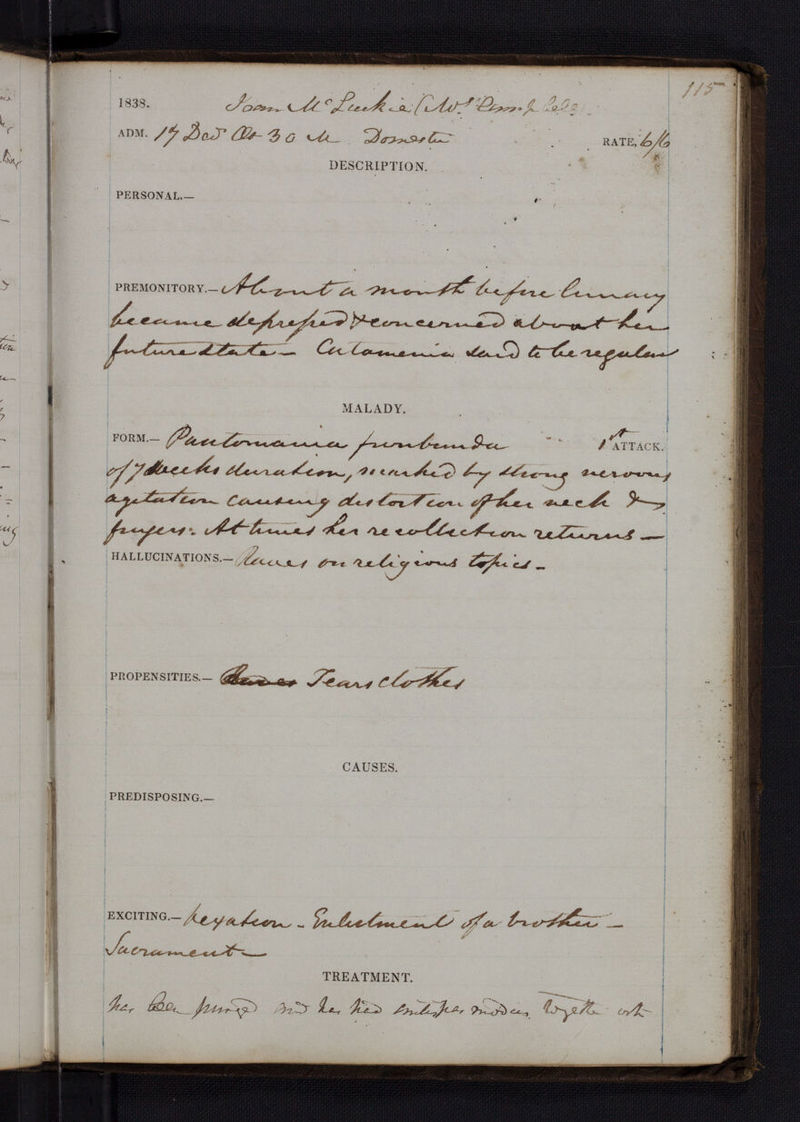 115
1838. Joan McLuckie (Mrs Campbell)
ADM. 17 Dec Aet 30 M Domestic RATE, 6/6
DESCRIPTION.
PERSONAL.—
PREMONITORY.— About a month before lunacy
became depressed & concerned about her
future state — Catamenia said to be regular
MALADY.
FORM.— Pantomania furibunda 1st ATTACK.
of 7 weeks duration, marked by strong nervous
agitation causing distortion of her neck &
fingers. At times her recollection returns —
HALLUCINATIONS.— Raves on religious topics —
PROPENSITIES.— Tears clothes
CAUSES.
PREDISPOSING.—
EXCITING.— Vexation - Enlistment of a brother —
Sacrament —
TREATMENT.
has been purged and has had together with